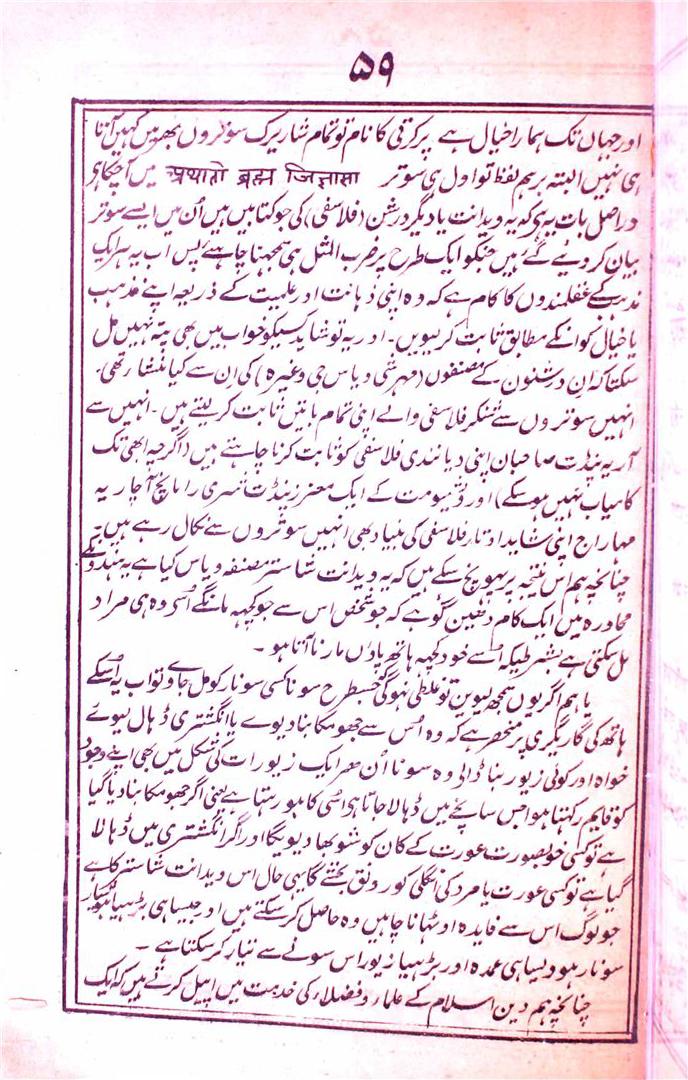 ۵۹
اور جہاں تک ہمارا خیال ہے پرکرتی کا نام تو تمام شاریرک سوتروں بھر میں کہیں آتا
ہی نہیں البتہ برہم لفظ تو اول ہی سوتر अथातो ब्रह्म जिज्ञासा میں آچکا ہی
دراصل بات یہ ہی کہ یہ ویدانت یا دیگر درشن (فلاسفی) کی جو کتابیں ہیں اُن میں ایسے سوتر
بیان کر دیے گئے ہیں جنکو ایک طرح پر ضرب المثل ہی سمجھنا چاہئے پس اب یہ ہر ایک
مذہب کے عقلمندوں کا کام ہے کہ وہ اپنی ذہانت اور علمیت کے ذریعہ اپنے مذہب
یا خیال کو انکے مطابق ثابت کر لیویں۔ اور یہ تو شاید کسیکو خواب میں بھی پتہ نہیں مل
سکتا کہ اِن درشنون کے مصنفوں (مہرشی ویاس جی وغیرہ) کی اِن سے کیا منشا رتھی۔
انہیں سوتروں سے شنکر فلاسفی والے اپنی تمام باتیں ثابت کر لیتے ہیں۔ انہیں سے
آریہ پنڈت صاحبان اپنی دیانندی فلاسفی کو ثابت کرنا چاہتے ہیں (اگرچہ ابھی تک
کامیاب نہیں ہوسکے) اور ویشنومت کے ایک معزز پنڈت شری رامانج آچاریہ
مہاراج اپنی شاید اوتار فلاسفی کی بنیاد بھی انہیں سوتروں سے نکال رہے ہیں۔
چنانچہ ہم اس نتیجہ پر پہونچ سکے ہیں کہ یہ ویدانت شاستر مصنفہ ویاس کیا ہے یہ ہندوؤنکے
محاورہ میں ایک کام دھین گؤ ہے کہ جو شخص اس سے جو کچھہ مانگے اُسے وہ ہی مراد
مل سکتی ہے بشرطیکہ اُسے خود کچھہ ہاتھ پاؤں مارنا آتا ہو۔
یا ہم اگر یوں سمجھ لیویں تو غلطی نہوگی جسطرح سونا کسی سونار کو مل جاوے تو اب یہ اُسکے
ہاتھ کی کاریگری پر منحصر ہے کہ وہ اُس سے جھومکا بنا دیوے یا انگشتری ڈہال لیوے
خواہ اور کوئی زیور بنا ڈالے وہ سونا اُن ہر ایک زیورات کی شکل میں بھی اپنے وجود
کو قایم رکھتا ہوا جس سانچے میں ڈہالا جاتا ہی اُسی کا ہو رہتا ہے یعنی اگر جھومکا بنا دیا گیا
ہے تو کسی خوبصورت عورت کے کان کو شوبھا دیویگا اور اگر انگشتری میں ڈہالا
گیا ہے تو کسی عورت یا مرد کی انگلی کو رونق بخشے گا یہی حال اس ویدانت شاستر کا ہے
جو لوگ اس سے فایدہ اوٹہانا چاہیں وہ حاصل کر سکتے ہیں اور جیسا ہی بڑہیا ہوشیار
سونار ہو ویسا ہی عمدہ اور بڑہیا زیور اس سونے سے تیار کر سکتا ہے۔
چنانچہ ہم دین اسلام کے علماء و فضلاء کی خدمت میں اپیل کرتے ہیں کہ ایک